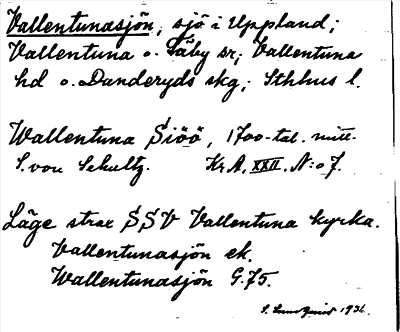 Vallentunasjön, sjö i Uppland;
Vallentuna o. Täby sr; Vallentuna
hd o. Danderyds skg; Sthlms l.
Wallentuna Siöö, 1700-tal. mitt.
S. von Schultz. Kr.A. XXII. N:o 7.
Läge strax SSV Vallentuna kyrka.
Vallentunasjön ek.
Wallentunasjön G.75.
S. Lundquist 1936.